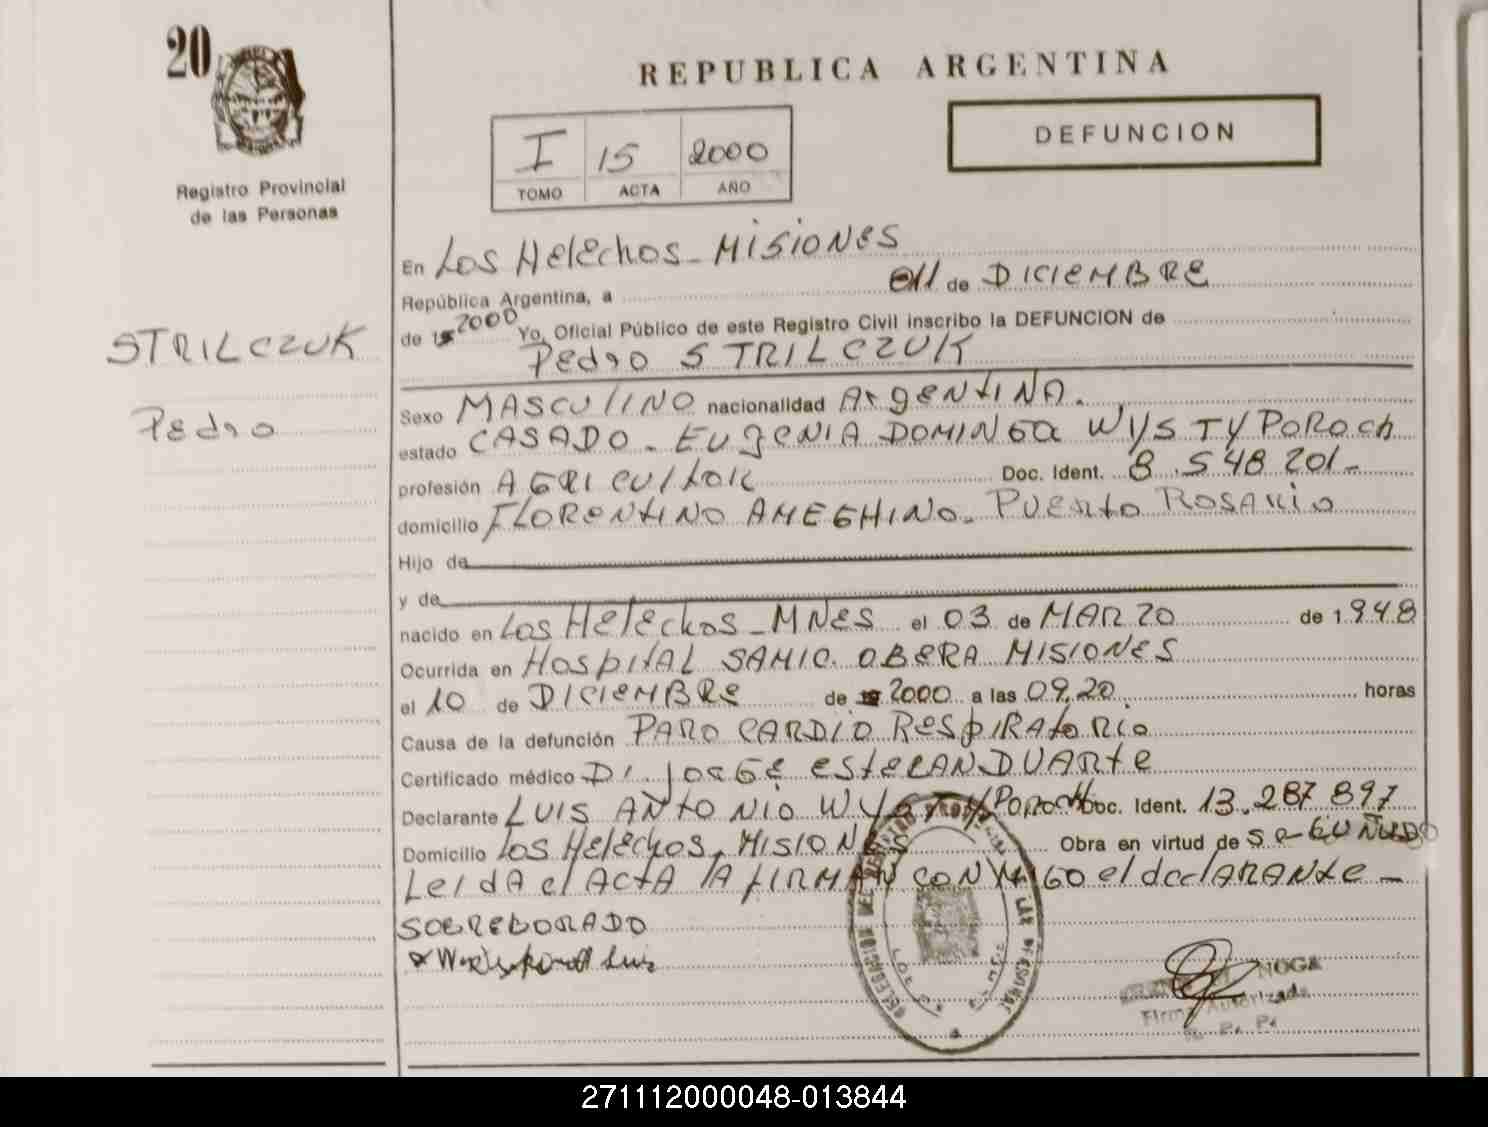 20
Registro Provincial
de las Personas
STRILCZUK
Pedro
REPUBLICA ARGENTINA
I 15 2000
TOMO ACTA AÑO
DEFUNCION
En Los Helechos - MISIONES
República Argentina, a 011 de DICIEMBRE
de 2000 Yo, Oficial Público de este Registro Civil inscribo la DEFUNCION de
Pedro STRILCZUK
Sexo MASCULINO nacionalidad ArgENtINA.
estado CASADO - EUgENIA DOMINGA WYSTYPOROch
profesión AGRICULtOR Doc. Ident. 8.548.201-
domicilio FLORENtINO AMEGHINO - PUERto ROSARIO
Hijo de
y de
nacido en Los Helechos - MNES el 03 de MARZO de 1948
Ocurrida en HospItAL SAMIC. OBERA MISIONES
el 10 de DICIEMBRE de 2000 a las 09,20 horas
Causa de la defunción PARO CARDIO RESpIRAtoRIo
Certificado médico Dr. JORGE EstEBAN DUARtE
Declarante LUIS ANtONIO WYSTYPoRocH Doc. Ident. 13.287.897
Domicilio Los Helechos, MISIONES Obra en virtud de
LeIdA el ActA lA fIRMAN CONMIGO el declARANtE -
SOBREBORADO
Luis
NOGA
Firma Autorizada